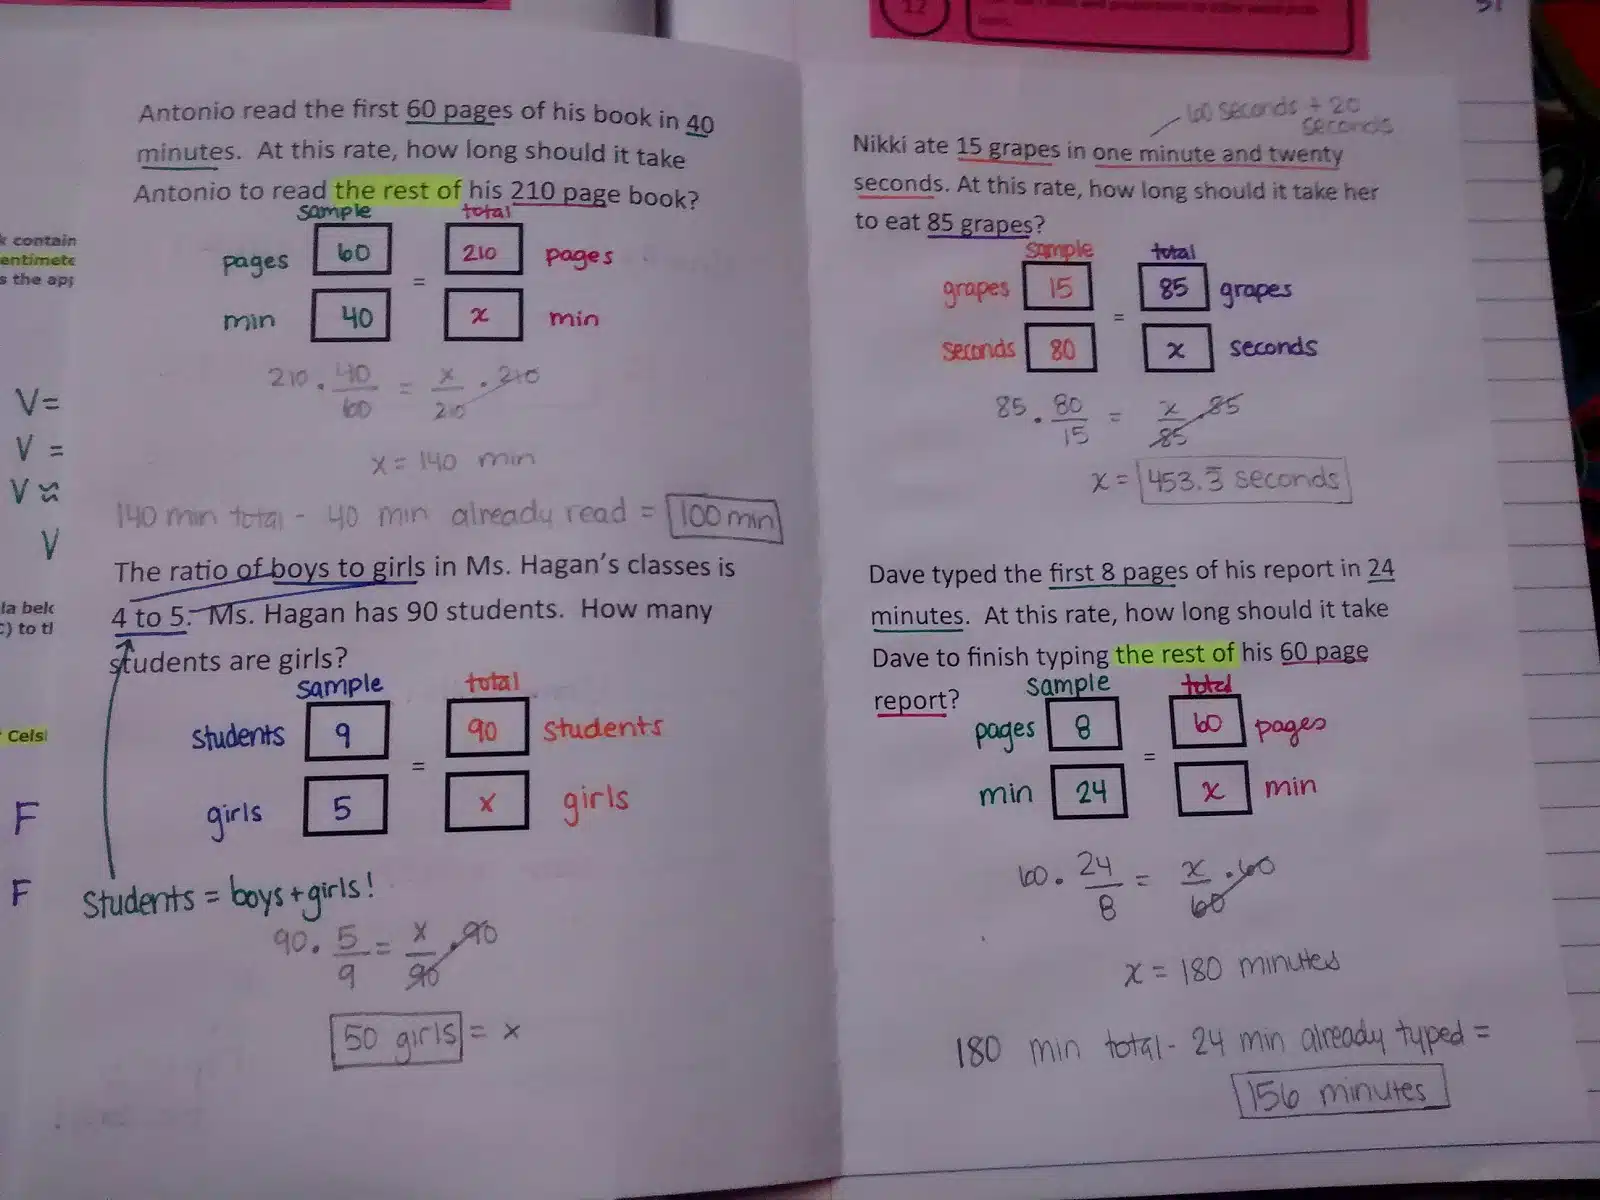 Antonio read the first 60 pages of his book in 40
minutes. At this rate, how long should it take
Antonio to read the rest of his 210 page book?
sample total
pages 60 = 210 pages
min 40 x min
210 · 40/60 = x/210 · 210
x = 140 min
140 min total - 40 min already read = 100 min
The ratio of boys to girls in Ms. Hagan's classes is
4 to 5. Ms. Hagan has 90 students. How many
students are girls?
sample total
students 9 = 90 students
girls 5 x girls
Students = boys + girls!
90 · 5/9 = x/90 · 90
50 girls = x
60 seconds + 20
seconds
Nikki ate 15 grapes in one minute and twenty
seconds. At this rate, how long should it take her
to eat 85 grapes?
sample total
grapes 15 = 85 grapes
seconds 80 x seconds
85 · 80/15 = x/85 · 85
x = 453.3̅ seconds
Dave typed the first 8 pages of his report in 24
minutes. At this rate, how long should it take
Dave to finish typing the rest of his 60 page
report?
sample total
pages 8 = 60 pages
min 24 x min
60 · 24/8 = x/60 · 60
x = 180 minutes
180 min total - 24 min already typed =
156 minutes
contain
s the
V=
V =
V ≈
V
to
F
F
12